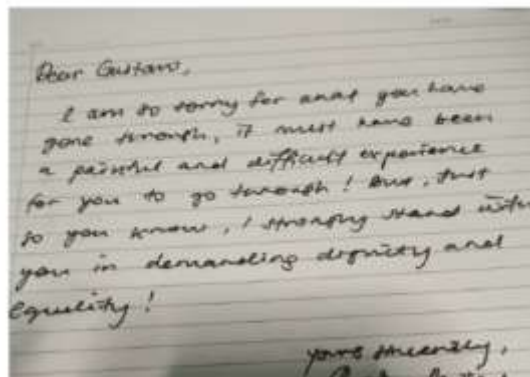 Dear Gustavo,
I am so sorry for what you have
gone through, it must have been
a painful and difficult experience
for you to go through! But, just
so you know, I strongly stand with
you in demanding dignity and
equality!
yours sincerely,